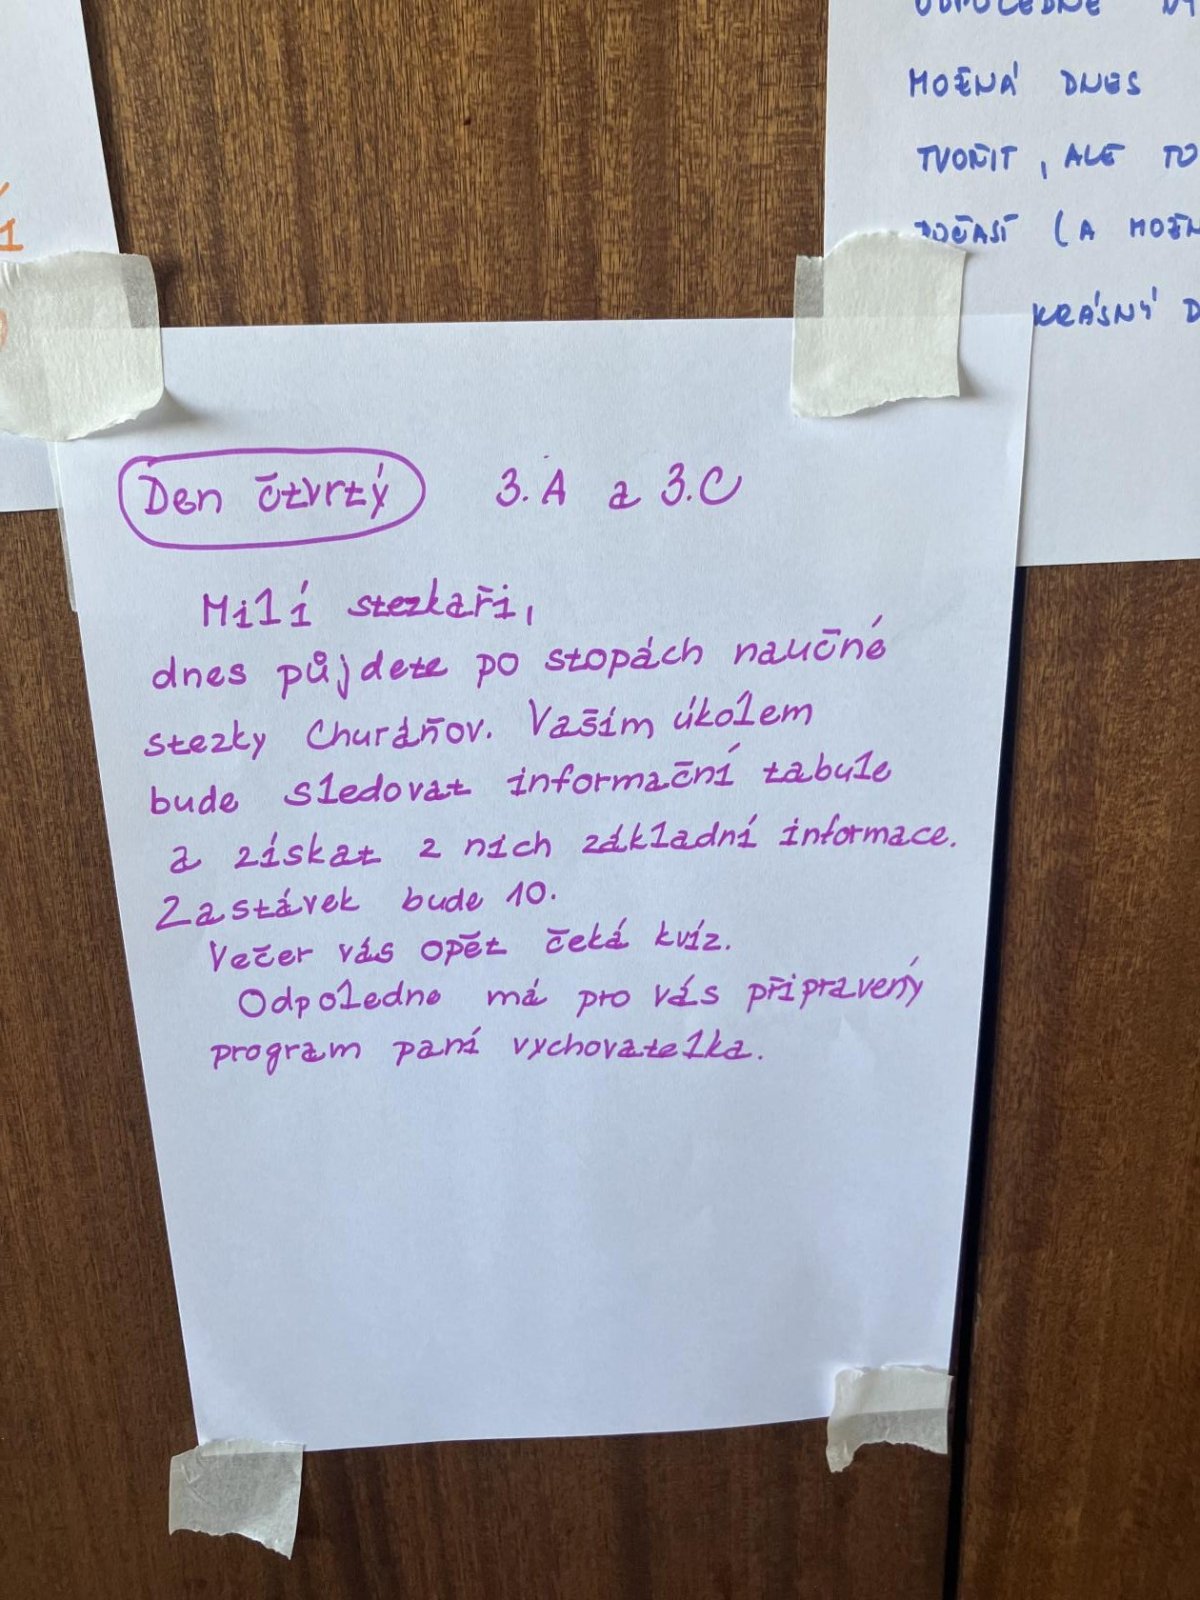 MOŽNÁ DNES
TVOŘIT, ALE TO
POČASÍ (A
KRÁSNÝ
Den čtvrtý 3.A a 3.C
Milí stezkaři,
dnes půjdete po stopách naučné
stezky Churáňov. Vaším úkolem
bude sledovat informační tabule
a získat z nich základní informace.
Zastávek bude 10.
Večer vás opět čeká kvíz.
Odpoledne má pro vás připravený
program paní vychovatelka.